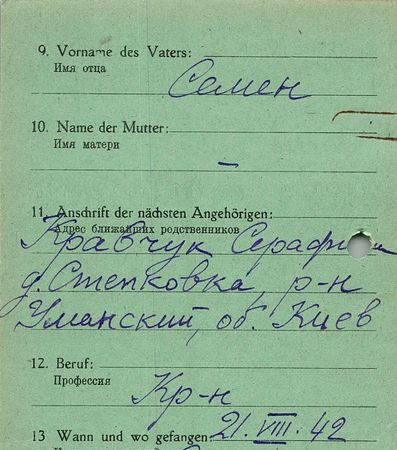 9. Vorname des Vaters:
Имя отца
Семен
10. Name der Mutter:
Имя матери
–
11. Anschrift der nächsten Angehörigen:
Адрес ближайших родственников
Кравчук
д. Степковка, р-н
Уманский, об. Киев
12. Beruf:
Профессия
Кр-н
13 Wann und wo gefangen: 21. VIII. 42